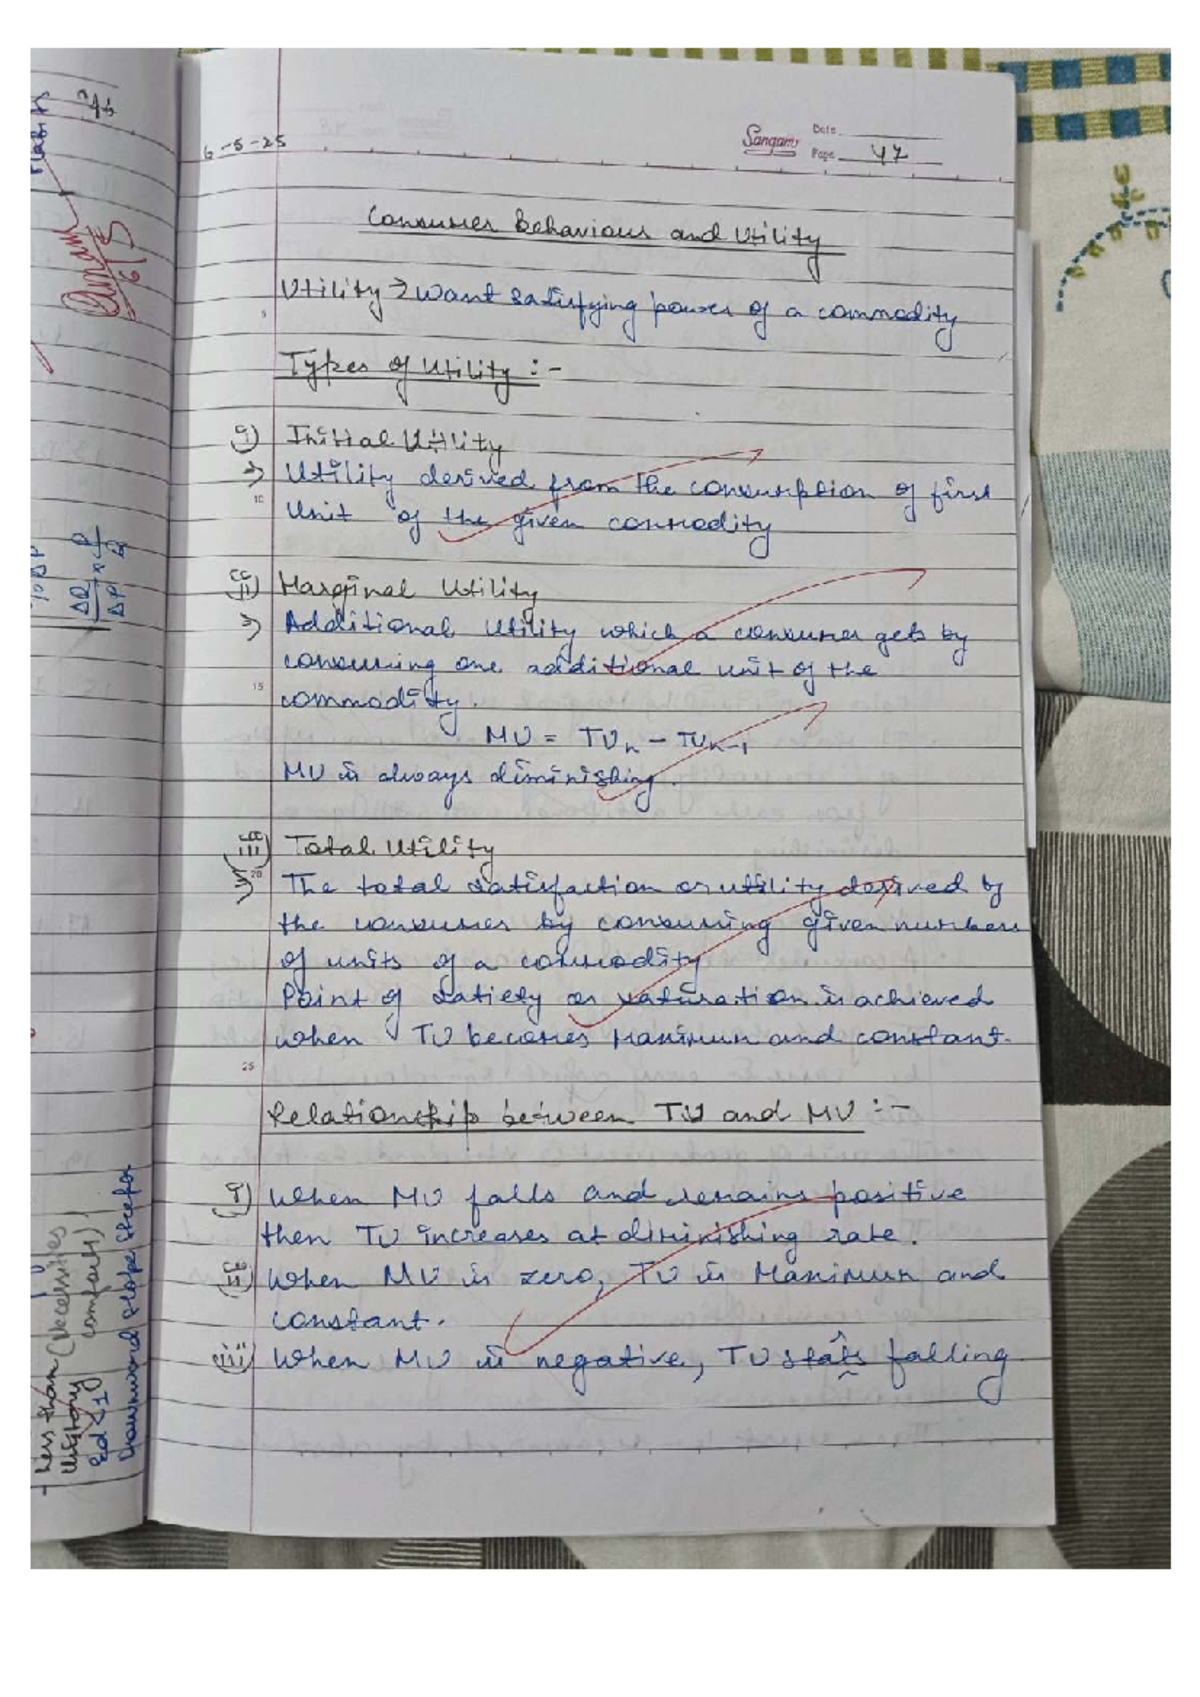 6-5-25
Sangam
Date
Page 47
Consumer Behaviour and Utility
Utility → Want satisfying power of a commodity
Types of Utility :-
(i) Initial Utility
→ Utility derived from the consumption of first
unit of the given commodity
(ii) Marginal Utility
→ Additional Utility which a consumer gets by
consuming one additional unit of the
commodity.
MU = TUn - TUn-1
MU is always diminishing.
(iii) Total Utility
→ The total satisfaction or utility derived by
the consumer by consuming given numbers
of units of a commodity
Point of satiety or saturation is achieved
when TU becomes Maximum and constant.
Relationship between TU and MU :-
(i) When MU falls and remains positive
then TU increases at diminishing rate.
(ii) When MU is zero, TU is Maximum and
constant.
(iii) When MU is negative, TU stats falling
5
10
15
20
25
6/5
ΔQ/ΔP × P/Q
- Less than (Necessities
Unitary comforts)
Ed < 1
Downward slope steeper